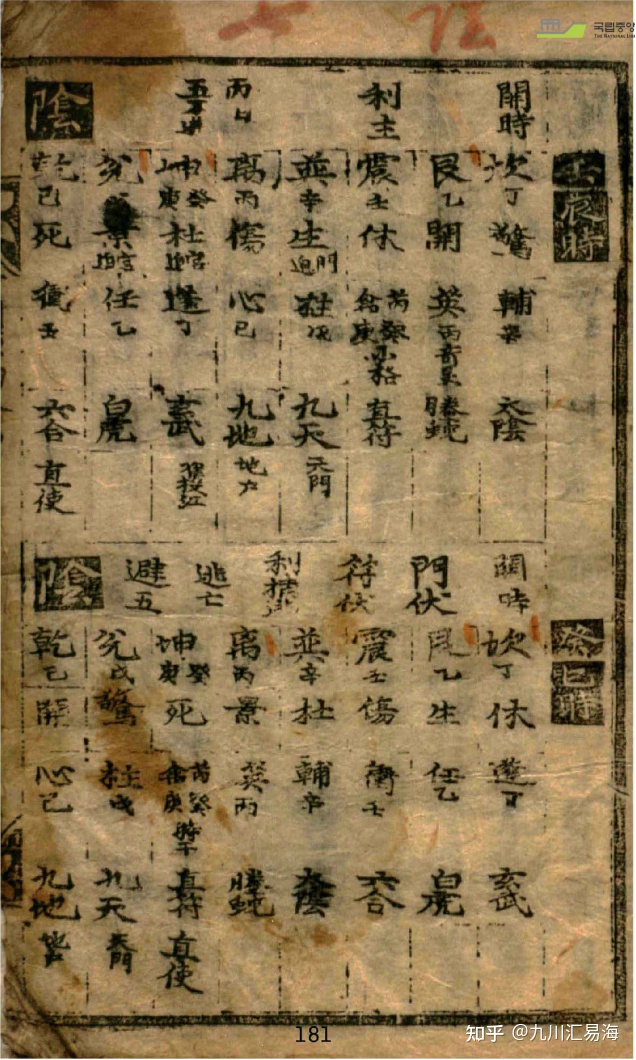 국립중앙
THE NATIONAL LIB
壬辰時
開時 坎丁驚 輔辛 太陰
艮乙開 英丙奇 螣蛇
利主 震壬休 芮癸禽庚小格 直符
巽辛生門迫 柱戊 九天 天門
丙日 離丙傷 心己 九地 地戶
坤癸庚杜迫宮 蓬丁 玄武
兌景迫宮 任乙 白虎
陰 乾己死 衝壬 六合 直使
癸巳時
時 坎丁休 蓬丁 玄武
門伏 艮乙生 任乙 白虎
符伏 震壬傷 衝壬 六合
利捕 巽辛杜 輔辛 太陰
逃亡 離丙景 英丙 螣蛇
避五 坤癸庚死 芮癸禽庚時干 直符 直使
兌戊驚 柱戊 九天 天門
陰 乾己開 心己 九地
181
知乎 @九川汇易海